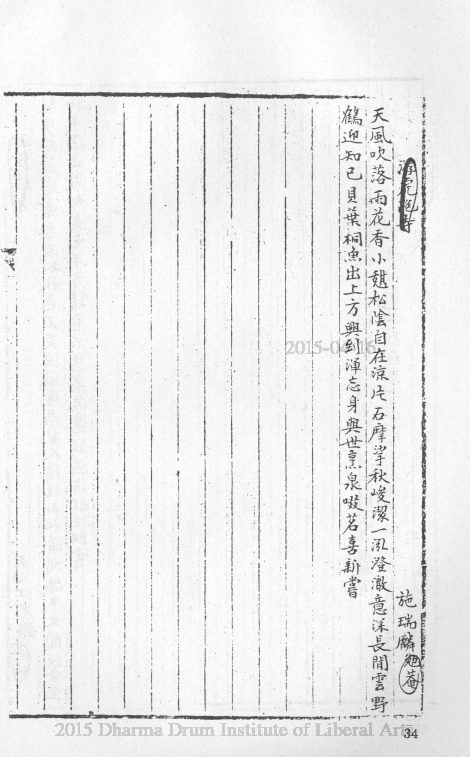 施瑞麟
天風吹落雨花香小憩松陰自在涼片石摩挲秋峻潔一泓澄澈意深長閒雲野
鶴迎知己貝葉桐魚出上方興到渾忘身與世烹泉啜茗喜新嘗
2015-04-16
2015 Dharma Drum Institute of Liberal Arts
34